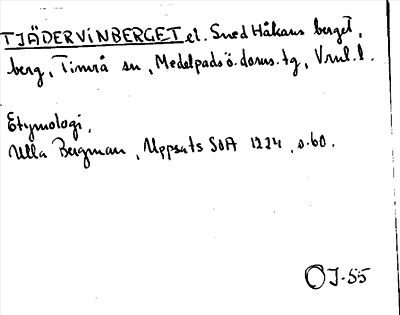 TJÄDERVINBERGET el. Sned Håkans berget,
berg, Timrå sn, Medelpads ö. doms. tg, Vrnl. l.
Etymologi,
Ulla Bergman, Uppsats SOA 1224, s. 60.
OJ-55